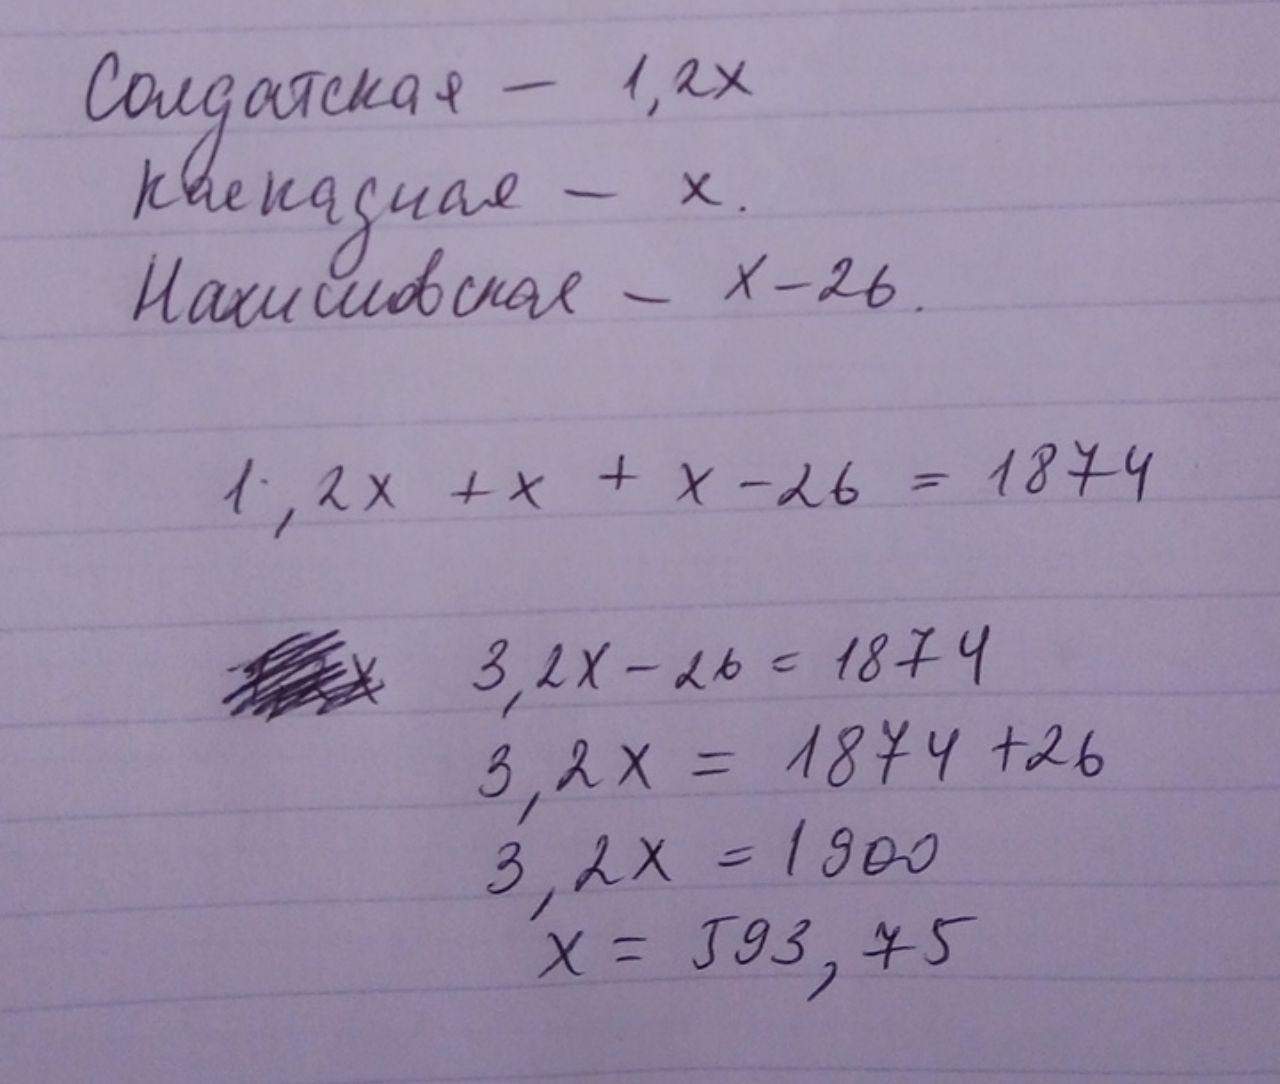 Солдатская – 1,2x
Каскадная – x.
Нахимовская – x-26.
1,2x + x + x - 26 = 1874
3,2x - 26 = 1874
3,2x = 1874 + 26
3,2x = 1900
x = 593,75